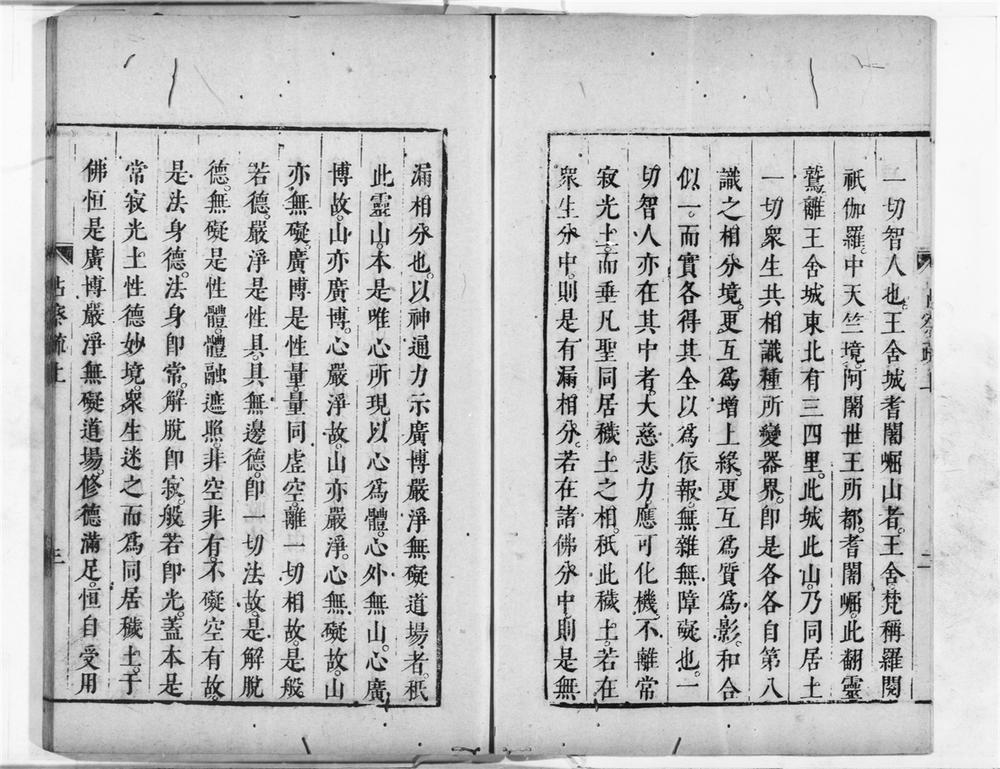 一切智人也。王舍城耆闍崛山者。王舍。梵稱羅閱
祇伽羅。中天竺境。阿闍世王所都。耆闍崛。此翻靈
鷲。離王舍城東北有三四里。此城此山。乃同居土
一切眾生共相識種所變器界。卽是各各自第八
識之相分境。更互爲增上緣。更互爲質爲影。和合
似一。而實各得其全以爲依報。無雜無障礙也。一
切智人亦在其中者。大慈悲力應可化機。不離常
寂光土。而垂凡聖同居穢土之相。秖此穢土。若在
眾生分中。則是有漏相分。若在諸佛分中則是無
二
漏相分也。以神通力示廣博嚴淨無礙道場者。秖
此靈山。本是唯心所現以心爲體。心外無山。心廣
博故。山亦廣博。心嚴淨故。山亦嚴淨。心無礙故。山
亦無礙。廣博是性量。量同虛空。離一切相故是般
若德。嚴淨是性具。具無邊德。卽一切法故。是解脫
德。無礙是性體。體融遮照。非空非有。不礙空有故。
是法身德。法身卽常。解脫卽寂。般若卽光。蓋本是
常寂光土。性德妙境。眾生迷之而爲同居穢土。于
佛恒是廣博嚴淨無礙道場。修德滿足。恒自受用
占察疏上
三